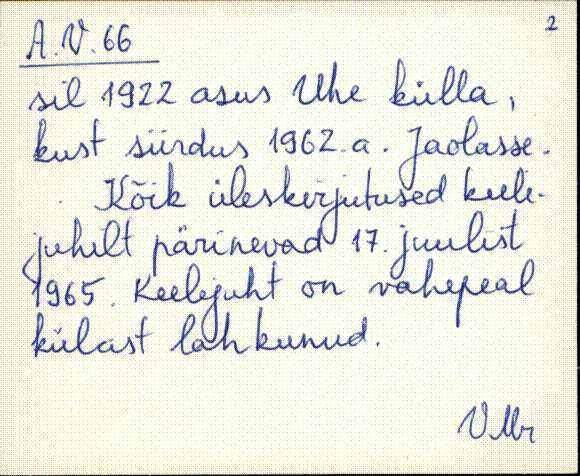 2
A.V. 66
sil 1922 asus Uhe külla,
kust siirdus 1962. a. Jaolasse.
Kõik üleskirjutused keele-
juhilt pärinevad 17. juulist
1965. Keelejuht on vahepeal
külast lahkunud.
VMr